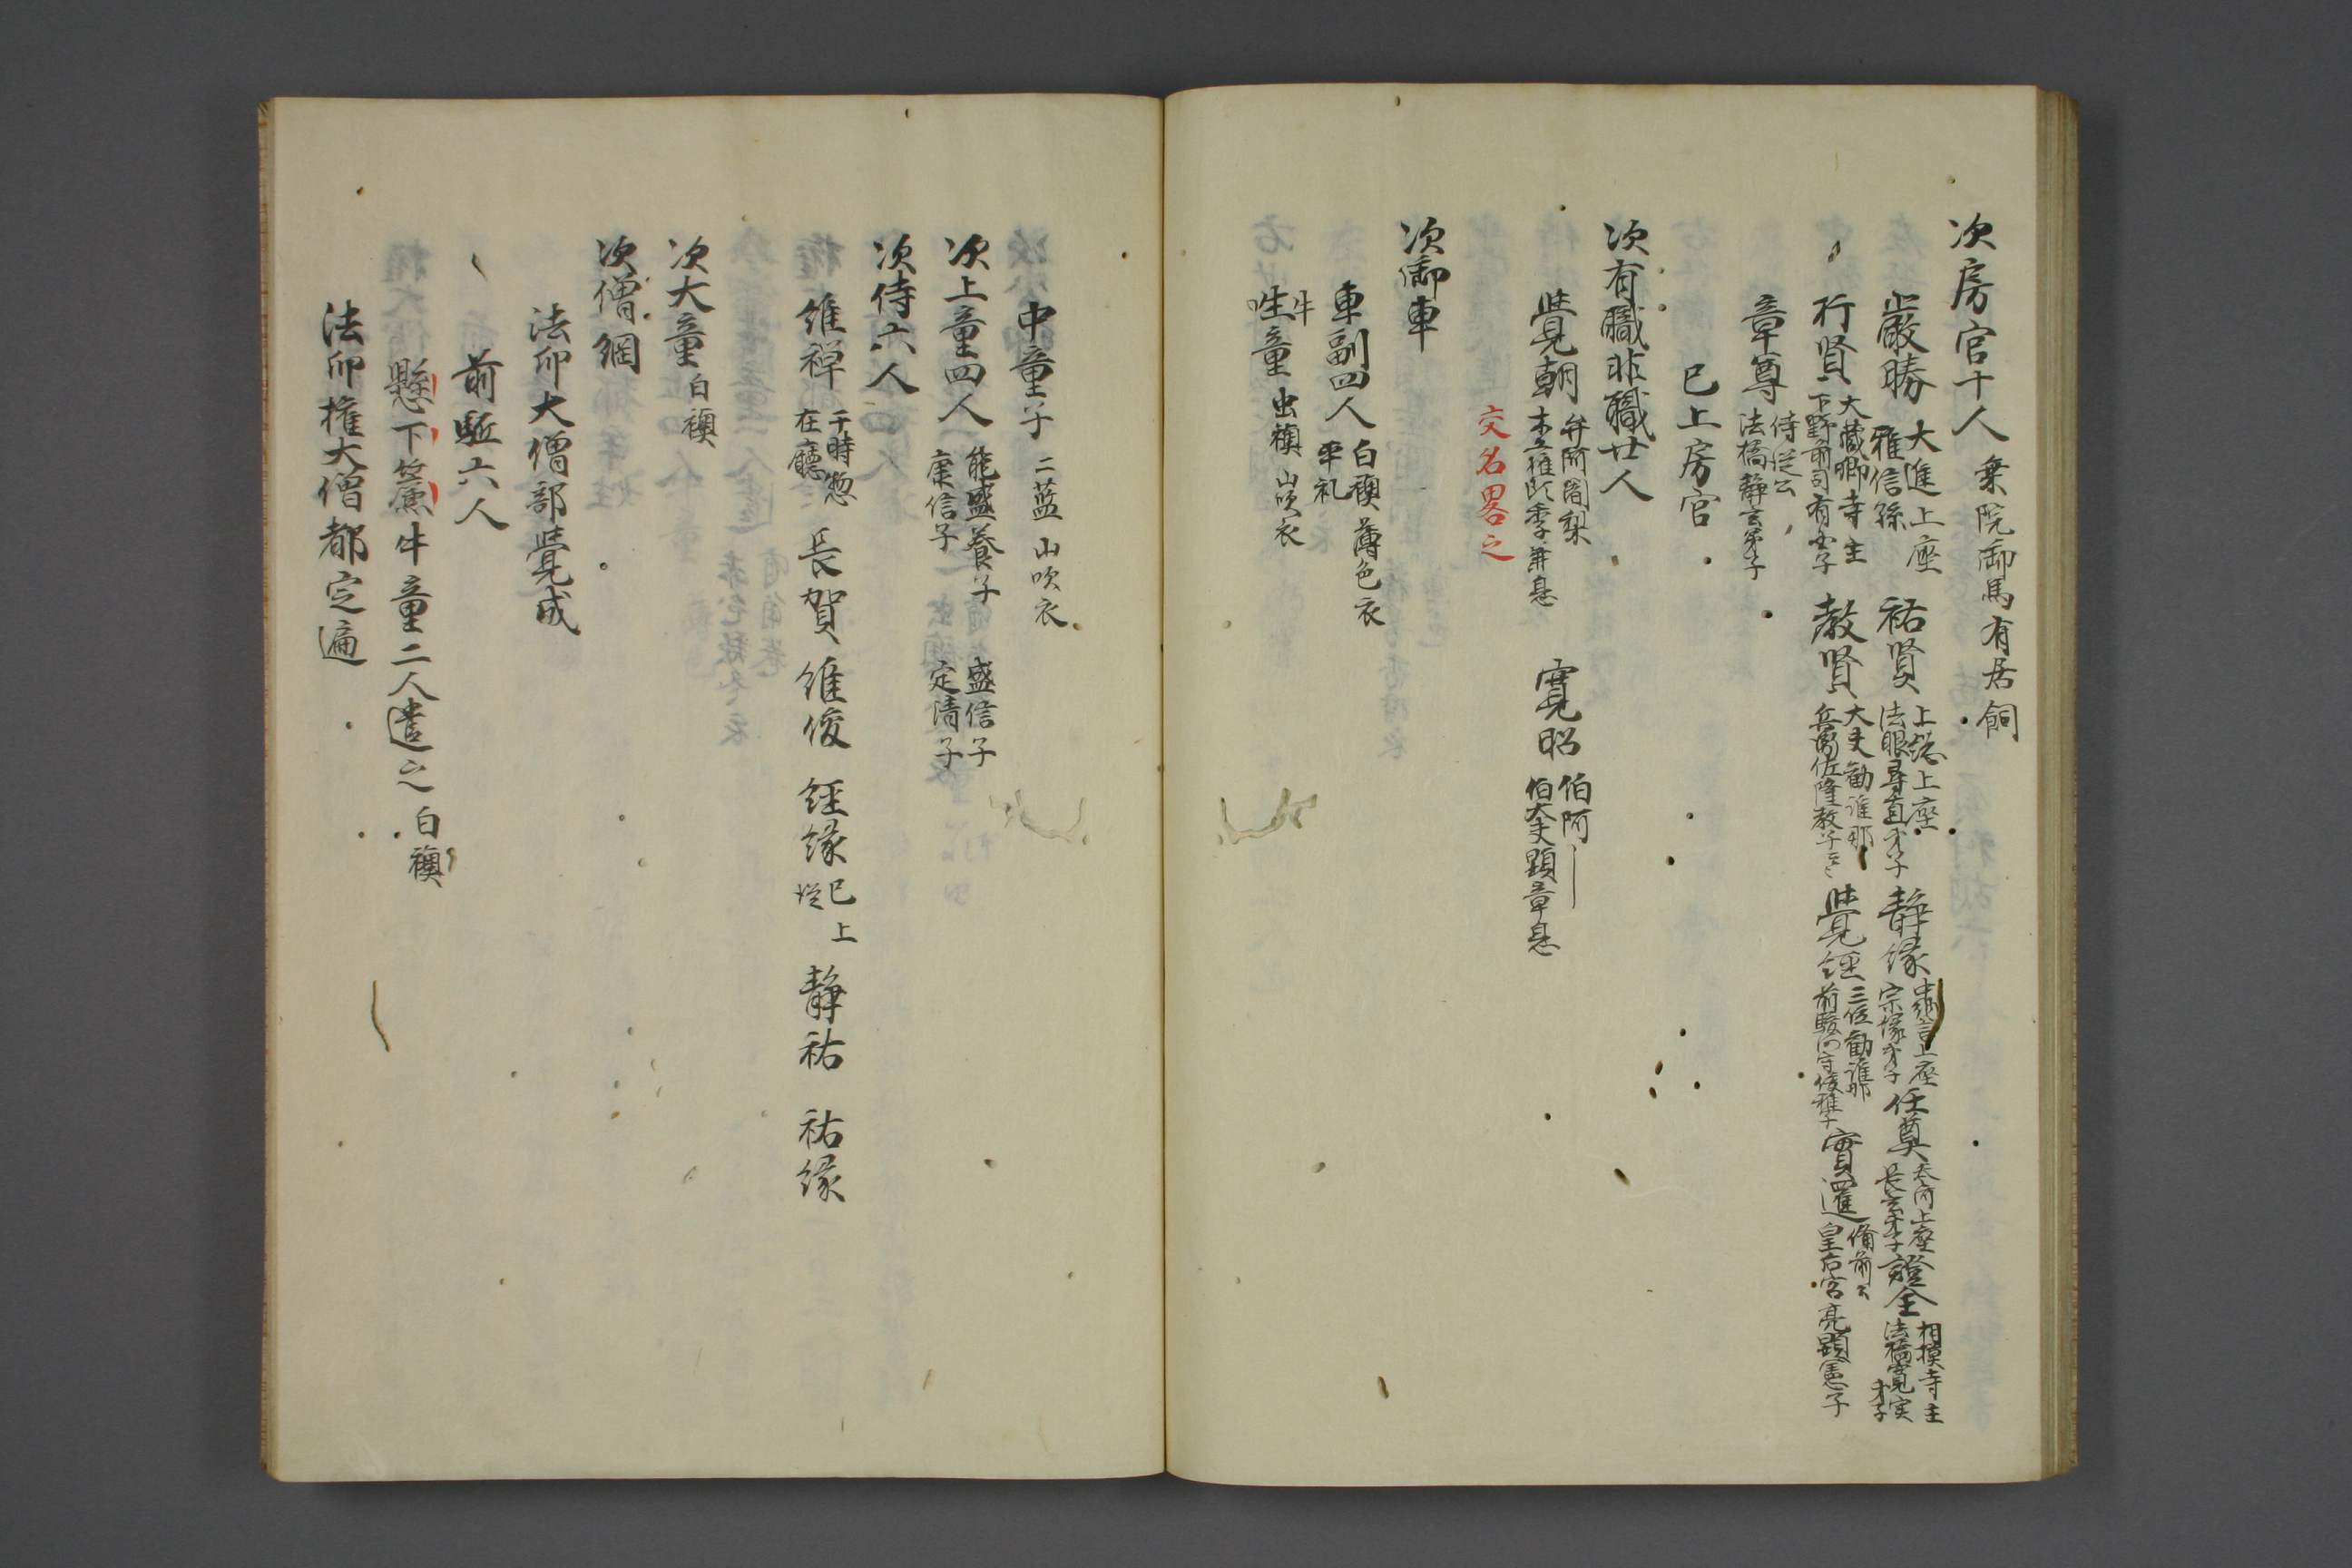 次房官十人 乗院御馬有居飼
嚴勝 大進上座 雅信孫 祐賢 上総上座 法眼尋直才子 静縁 中納言上座 宗塚才子 任尊 参河上座 長玄才子 證全 相摸寺主 法橋寛実才子
行賢 大蔵卿寺主 下野前司有忠子 教賢 大夫勧進那 兵衛佐隆教子 覺經 三位勧進那 前駿河守俊雅子 實暹 備前公 皇后宮亮顕憲子
章尊 侍従公 法橋静玄弟子
已上房官
次有職非職廿人
覺朝 弁阿闍梨 木工権頭季兼息 寛昭 伯阿 伯大夫顕章息
交名畧之
次御車
車副四人 白襖薄色衣 平礼
牛
吽童 虫襖 山吹衣
中童子 二藍 山吹衣
次上童四人 能盛養子 康信子 盛信子 定清子
次侍六人
維禅 于時惣在廳 長賀 維俊 經縁 已上従 静祐 祐縁
次大童 白襖
次僧綱
法印大僧都覺成
前駈六人
懸下簾牛童二人遣之 白襖
法印権大僧都定遍